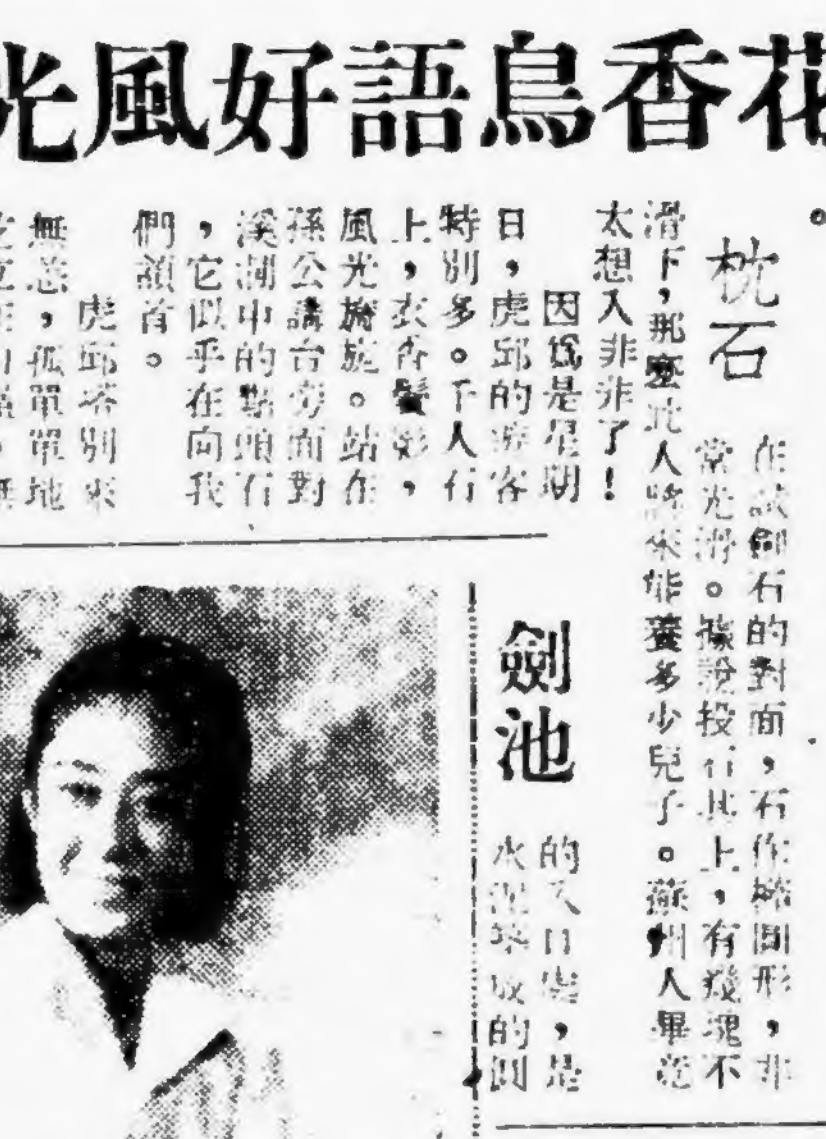 花香鳥語好風光
。
枕石
在試劍石的對面，石作橢圓形，非
常光滑。據說投石其上，有幾塊不
滑下，那麼此人將來能養多少兒子。蘇州人畢竟
太想入非非了！
因爲是星期
日，虎邱的遊客
特別多。千人石
上，衣香鬢影，
風光旖旎。站在
孫公講台旁面對
溪澗中的點頭石
，它似乎在向我
們頷首。
虎邱塔別來
無恙，孤單單地
劍池
的入口處，是
水泥築成的圓